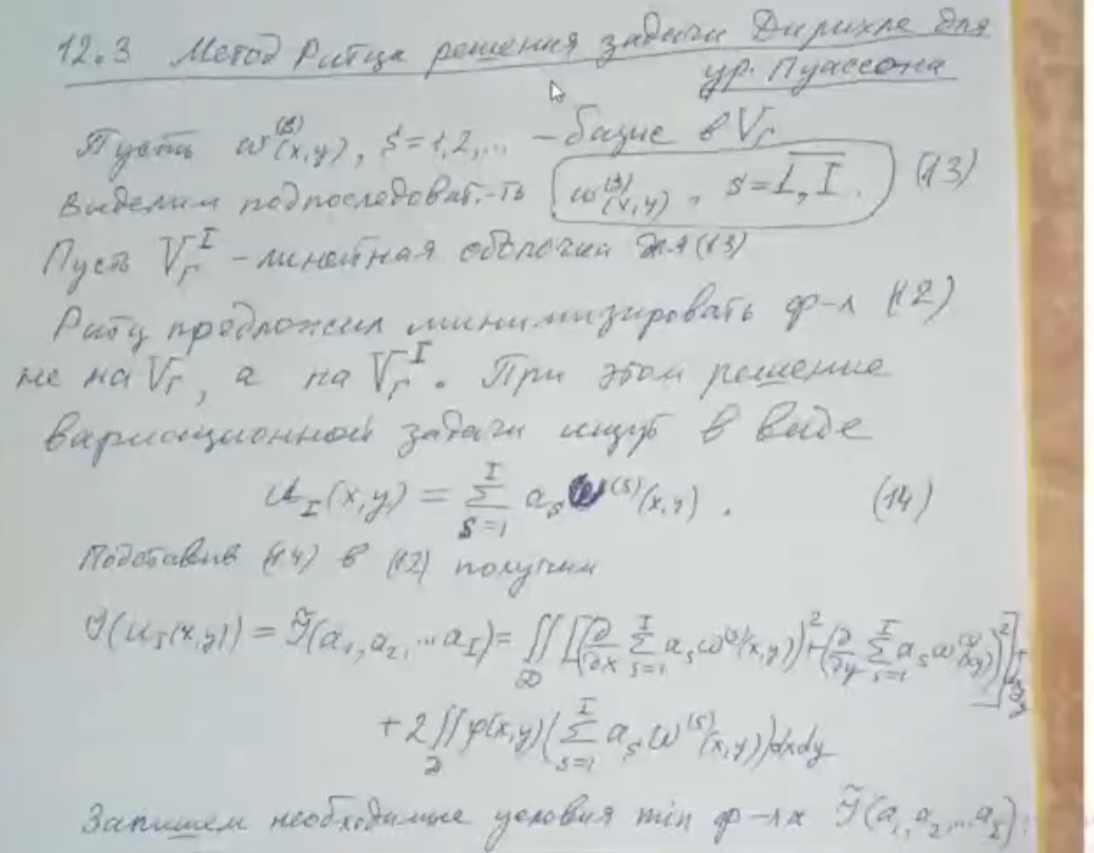 12.3 Метод Ритца решения задачи Дирихле для
ур. Пуассона
Пусть ω^(s)(x,y), s=1,2,... – базис в V_Γ
Выделим подпоследоват.-ть ω^(s)(x,y), s=1,I. (13)
Пусть V_Γ^I – линейная оболочка для (13)
Ритц предложил минимизировать ф-л (12)
не на V_Γ, а на V_Γ^I. При этом решение
вариационной задачи ищут в виде
u_I(x,y) = ∑_{s=1}^{I} a_s ω^(s)(x,y). (14)
Подставив (14) в (12) получим
J(u_I(x,y)) = J̃(a_1,a_2,...a_I) = ∬_D [(∂/∂x ∑_{s=1}^{I} a_s ω^(s)(x,y))^2 + (∂/∂y ∑_{s=1}^{I} a_s ω^(s)(x,y))^2] dxdy
+ 2 ∬_D φ(x,y) (∑_{s=1}^{I} a_s ω^(s)(x,y)) dxdy
Запишем необходимые условия min ф-ла J̃(a_1,a_2,...a_I):